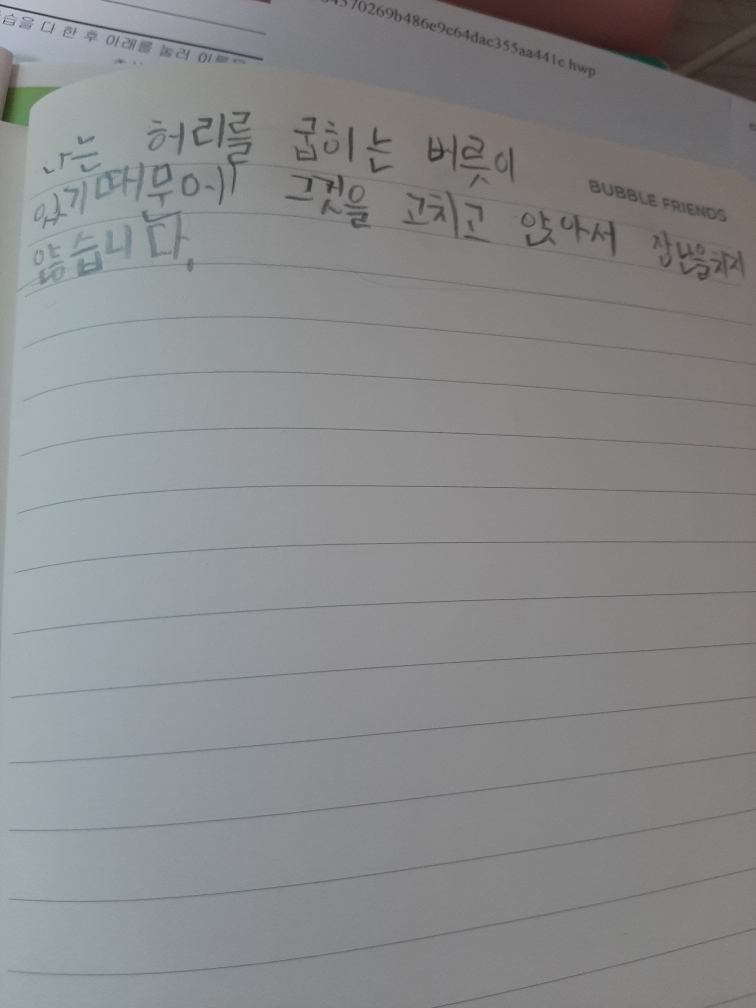 습을 다 한 후 아래를 눌러
4370269b486e9c64dac355aa441c.hwp
나는 허리를 굽히는 버릇이
BUBBLE FRIENDS
있기때문에 그것을 고치고 앉아서 장난을치지
않습니다.